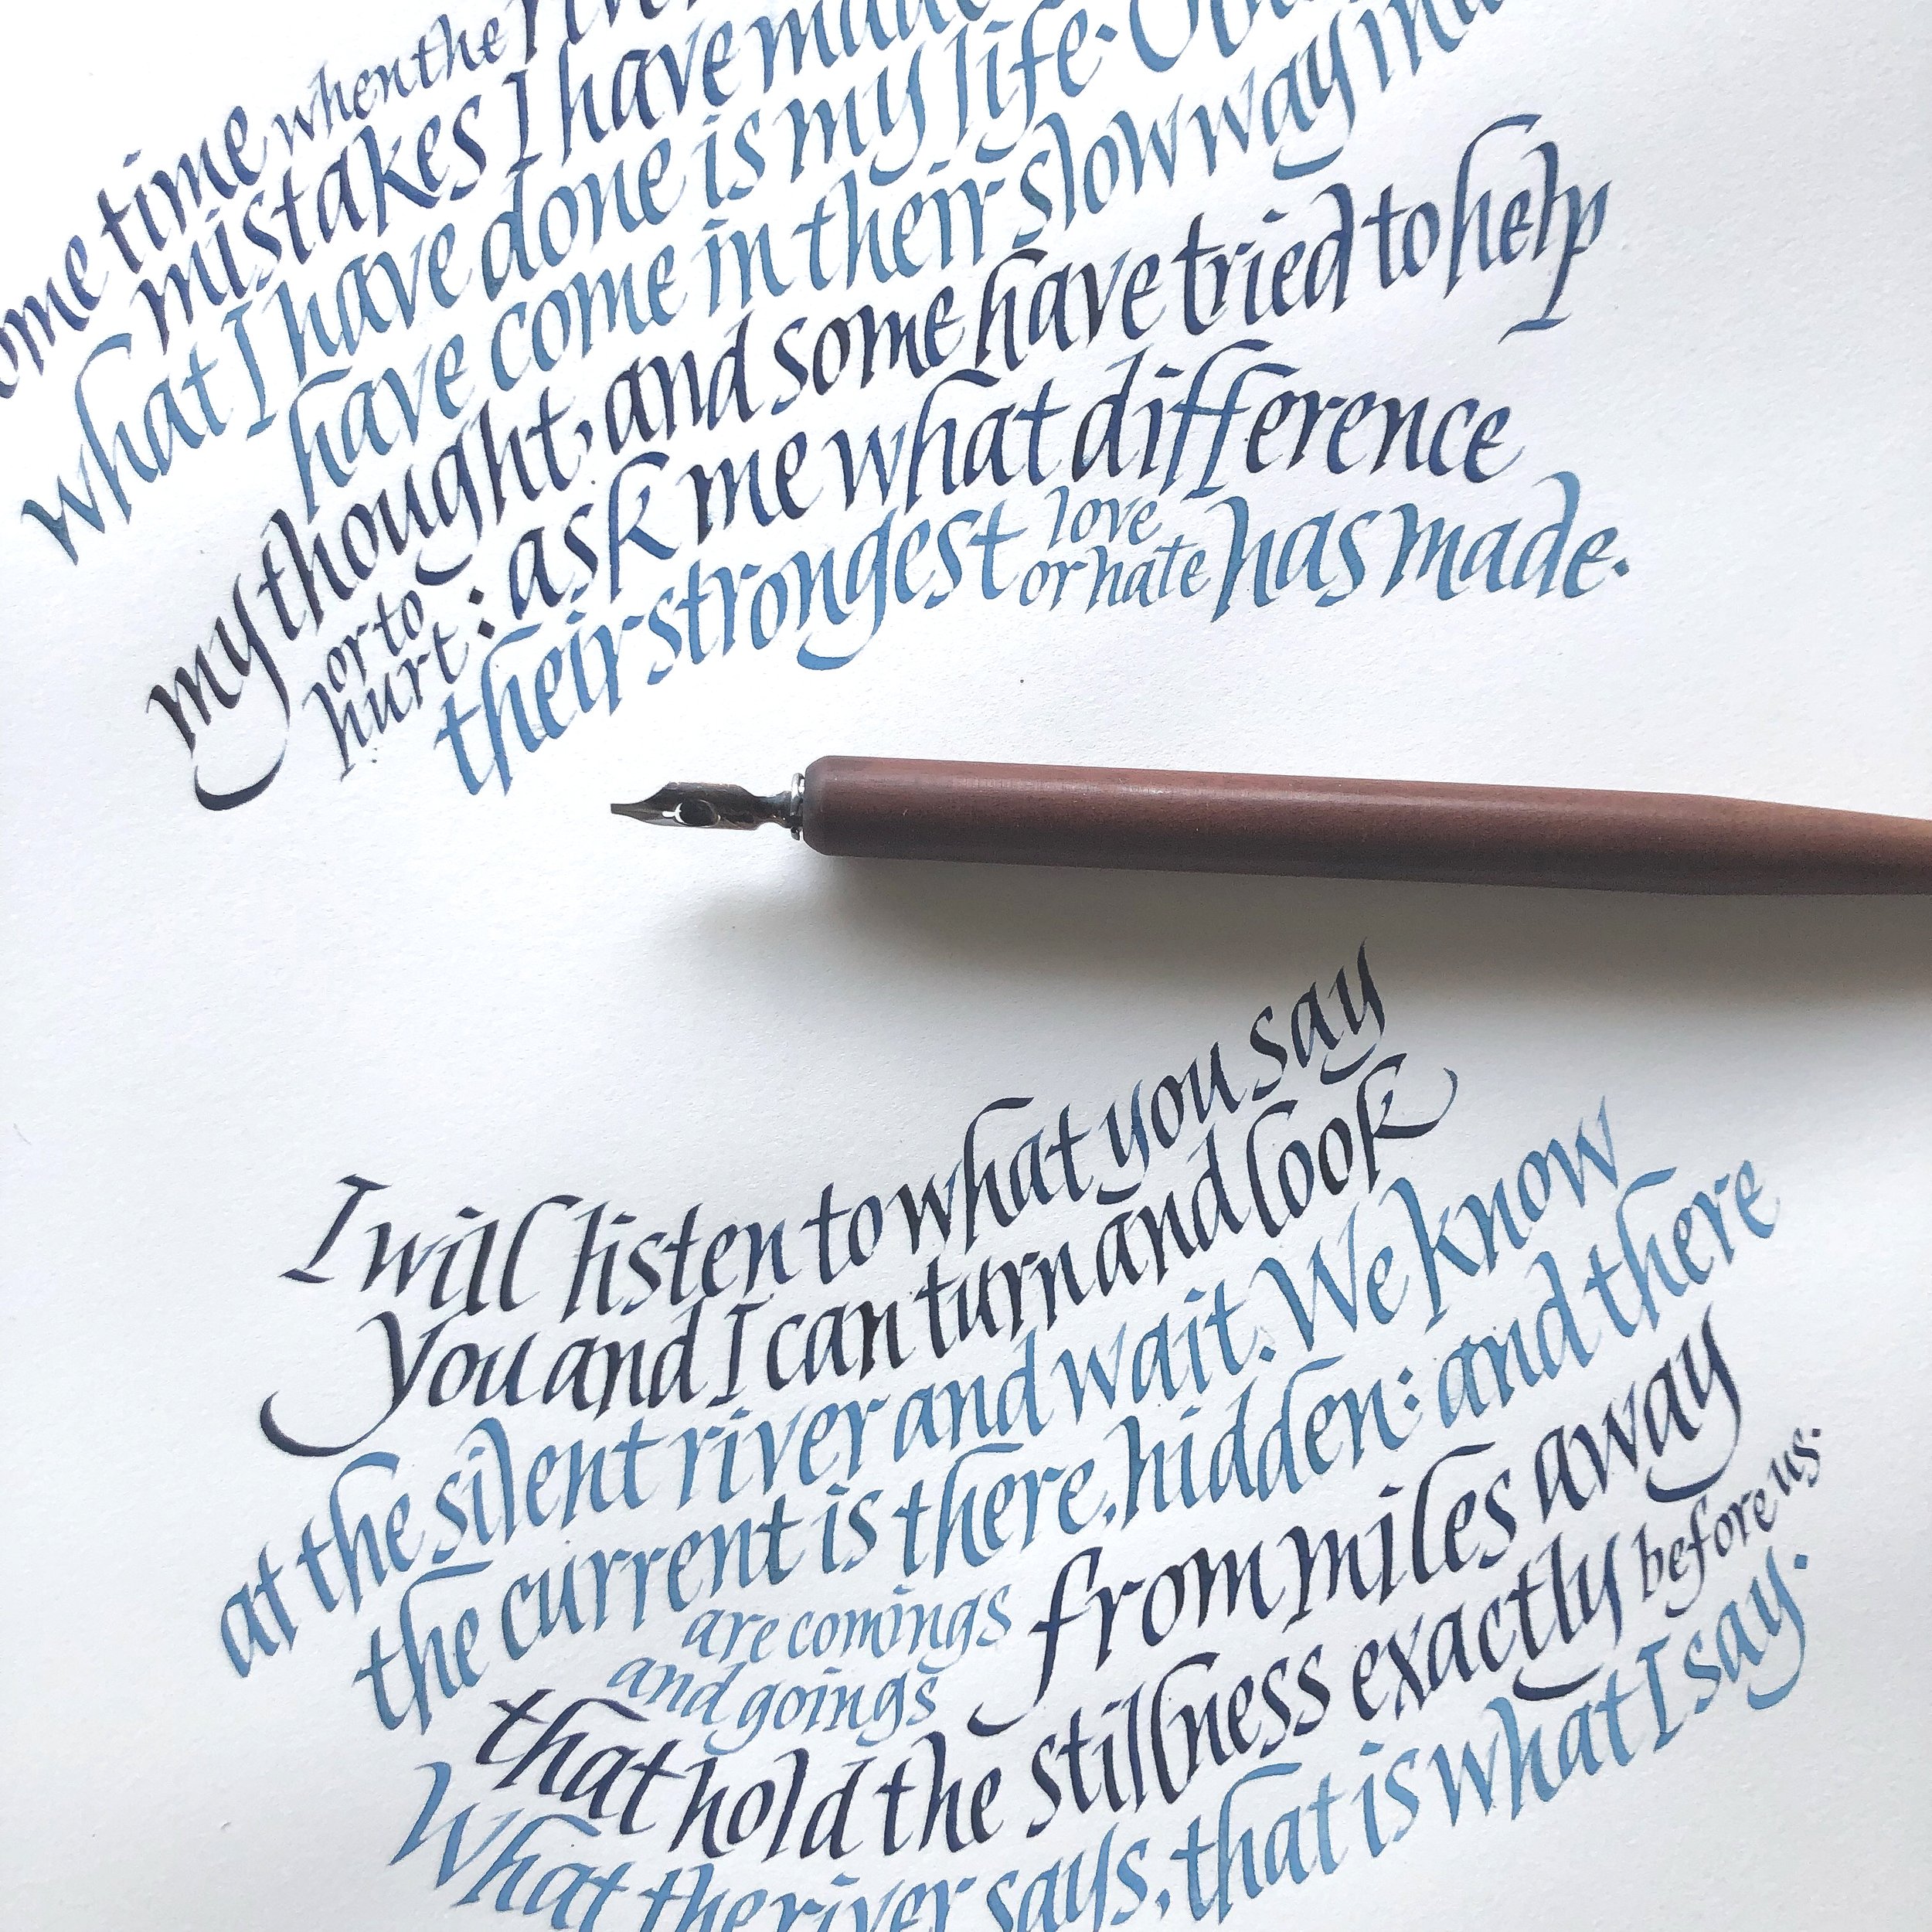 ome time when the river
mistakes I have made
what I have done is my life.
have come in their slow way in
my thought, and some have tried to help
or to
hurt : ask me what difference
their strongest love
or hate has made.
I will listen to what you say
You and I can turn and look
at the silent river and wait. We know
the current is there, hidden: and there
are comings
and goings from miles away
that hold the stillness exactly before us.
What the river says, that is what I say.